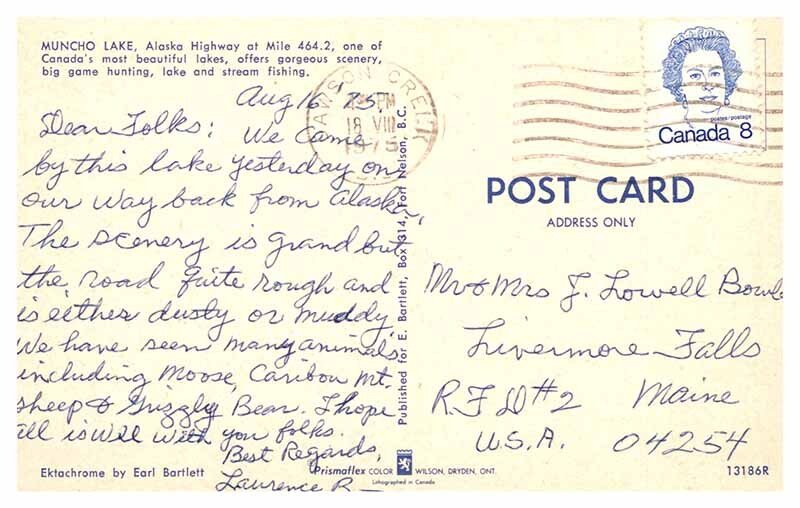 MUNCHO LAKE, Alaska Highway at Mile 464.2, one of
Canada's most beautiful lakes, offers gorgeous scenery,
big game hunting, lake and stream fishing.
Aug 16 75
Dear Folks: We came
by this lake yesterday on
our way back from Alaska.
The scenery is grand but
the road quite rough and
is either dusty or muddy
We have seen many animals
including Moose, Caribou Mt.
sheep & Grizzly Bear. I hope
all is well with you folks.
Best Regards,
Laurence R
Ektachrome by Earl Bartlett
Published for E. Bartlett, Box 314, Fort Nelson, B.C.
DAWSON CREEK
PM
18 VIII
1975
postes/postage
Canada 8
POST CARD
ADDRESS ONLY
Mr & Mrs J. Lowell
Livermore Falls
R.F.D #2 Maine
U.S.A. 04254
Prismaflex COLOR WILSON, DRYDEN, ONT.
Lithographed in Canada
13186R